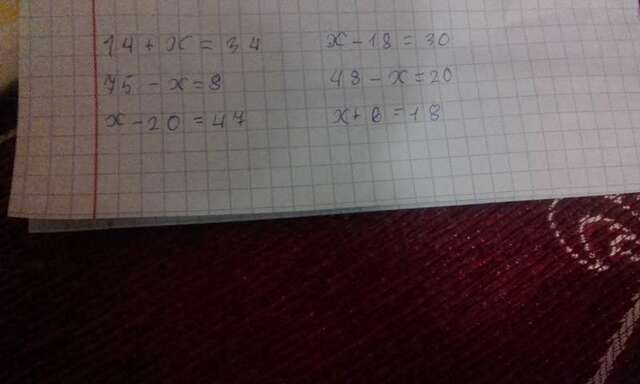 14 + x = 34
75 - x = 8
x - 20 = 47
x - 18 = 30
48 - x = 20
x + 6 = 18